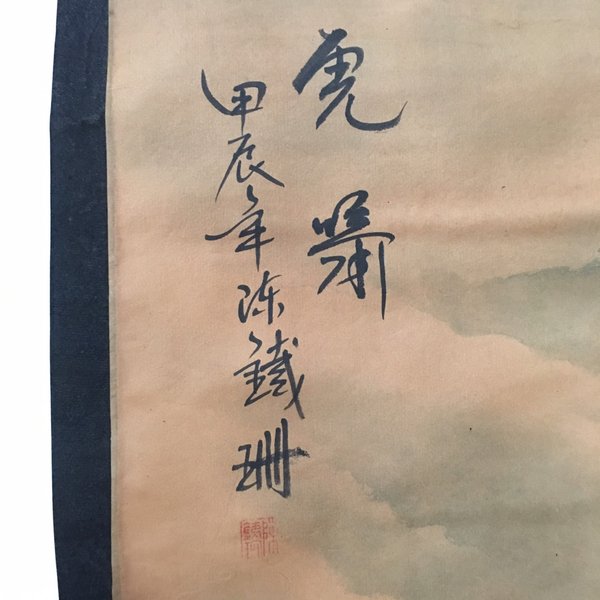 虎嘯
甲辰年陈鐵珊